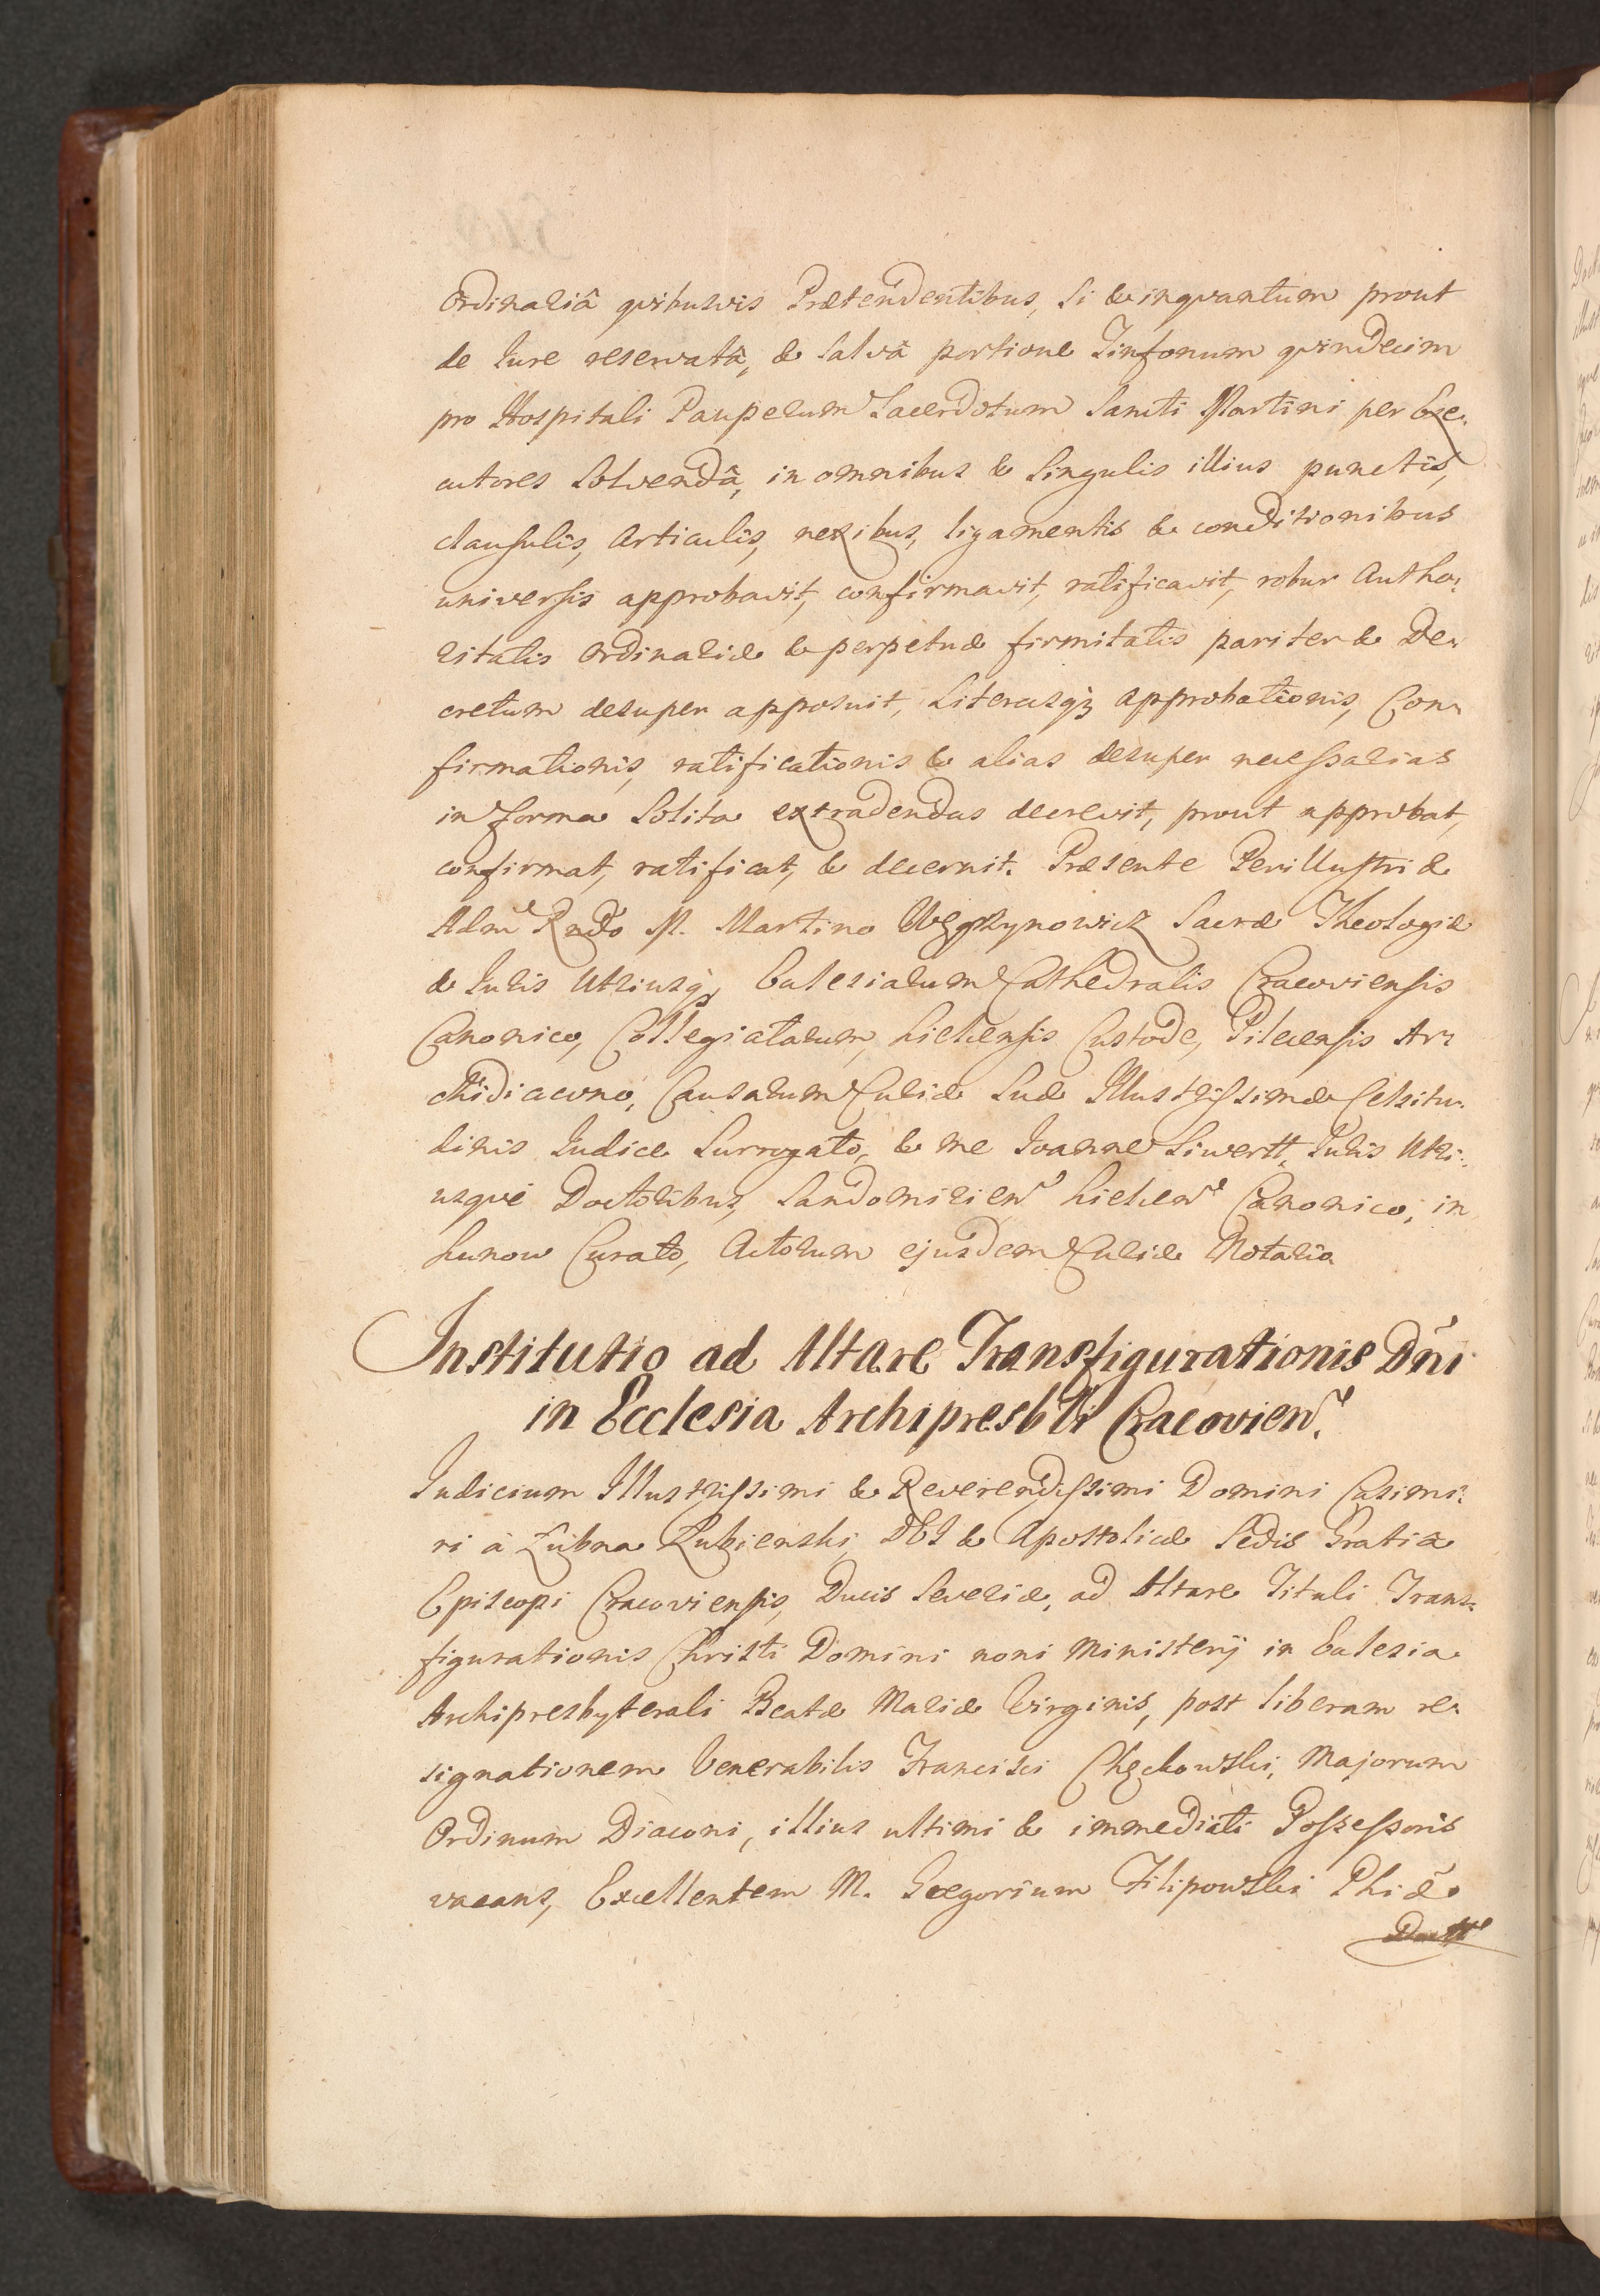 Ordinariâ quibusvis Prætendentibus, si & inquantum prout
de Iure reservatâ, & salvâ portione Tinfonum quindecim
pro Hospitali Pauperum Sacerdotum Sancti Martini per Exe-
cutores solvendâ, in omnibus & singulis illius punctis,
clausulis, Articulis, nexibus, ligamentis & conditionibus
universis approbavit, confirmavit, ratificavit, robur Autho-
ritatis Ordinariæ & perpetuæ firmitatis pariter & De-
cretum desuper apposuit, Literasq3 approbationis, Con-
firmationis, ratificationis & alias desuper necessarias
in forma solita extradendas decrevit, prout approbat,
confirmat, ratificat, & decernit. Præsente Perillustri &
Adm Rndo M. Martino Węgrzynowicz Sacræ Theologiæ
& Iuris Utriusq3, Ecclesiarum Cathedralis Cracoviensis
Canonico, Collegiatarum, Kielcensis Custode, Pilecensis Ar-
chidiacono, Causarum Curiæ Suæ Illustrissimæ Celsitu-
dinis Iudice Surrogato, & me Ioanne Siwertt, Iuris Utri-
usque Doctoribus, Sandomirien Kielcen Canonico, in
Kunow Curato, Actorum ejusdem Curiæ Notario
Institutio ad Altare Transfigurationis Dñi
in Ecclesia Archipresbtli Cracovien.
Iudicium Illustrissimi & Reverendissimi Domini Casimi-
ri à Łubna Łubienski, DEI & Apostolicæ Sedis Gratiâ
Episcopi Cracoviensis, Ducis Severiæ, ad Altare Tituli Trans-
figurationis Christi Domini noni Ministerij in Ecclesia
Archipresbyterali Beatæ Mariæ Virginis, post liberam re-
signationem Venerabilis Francisci Chęckowski, Majorum
Ordinum Diaconi, illius ultimi & immediati Possessoris
vacans, Excellentem M. Gregorium Filipowski Phiæ